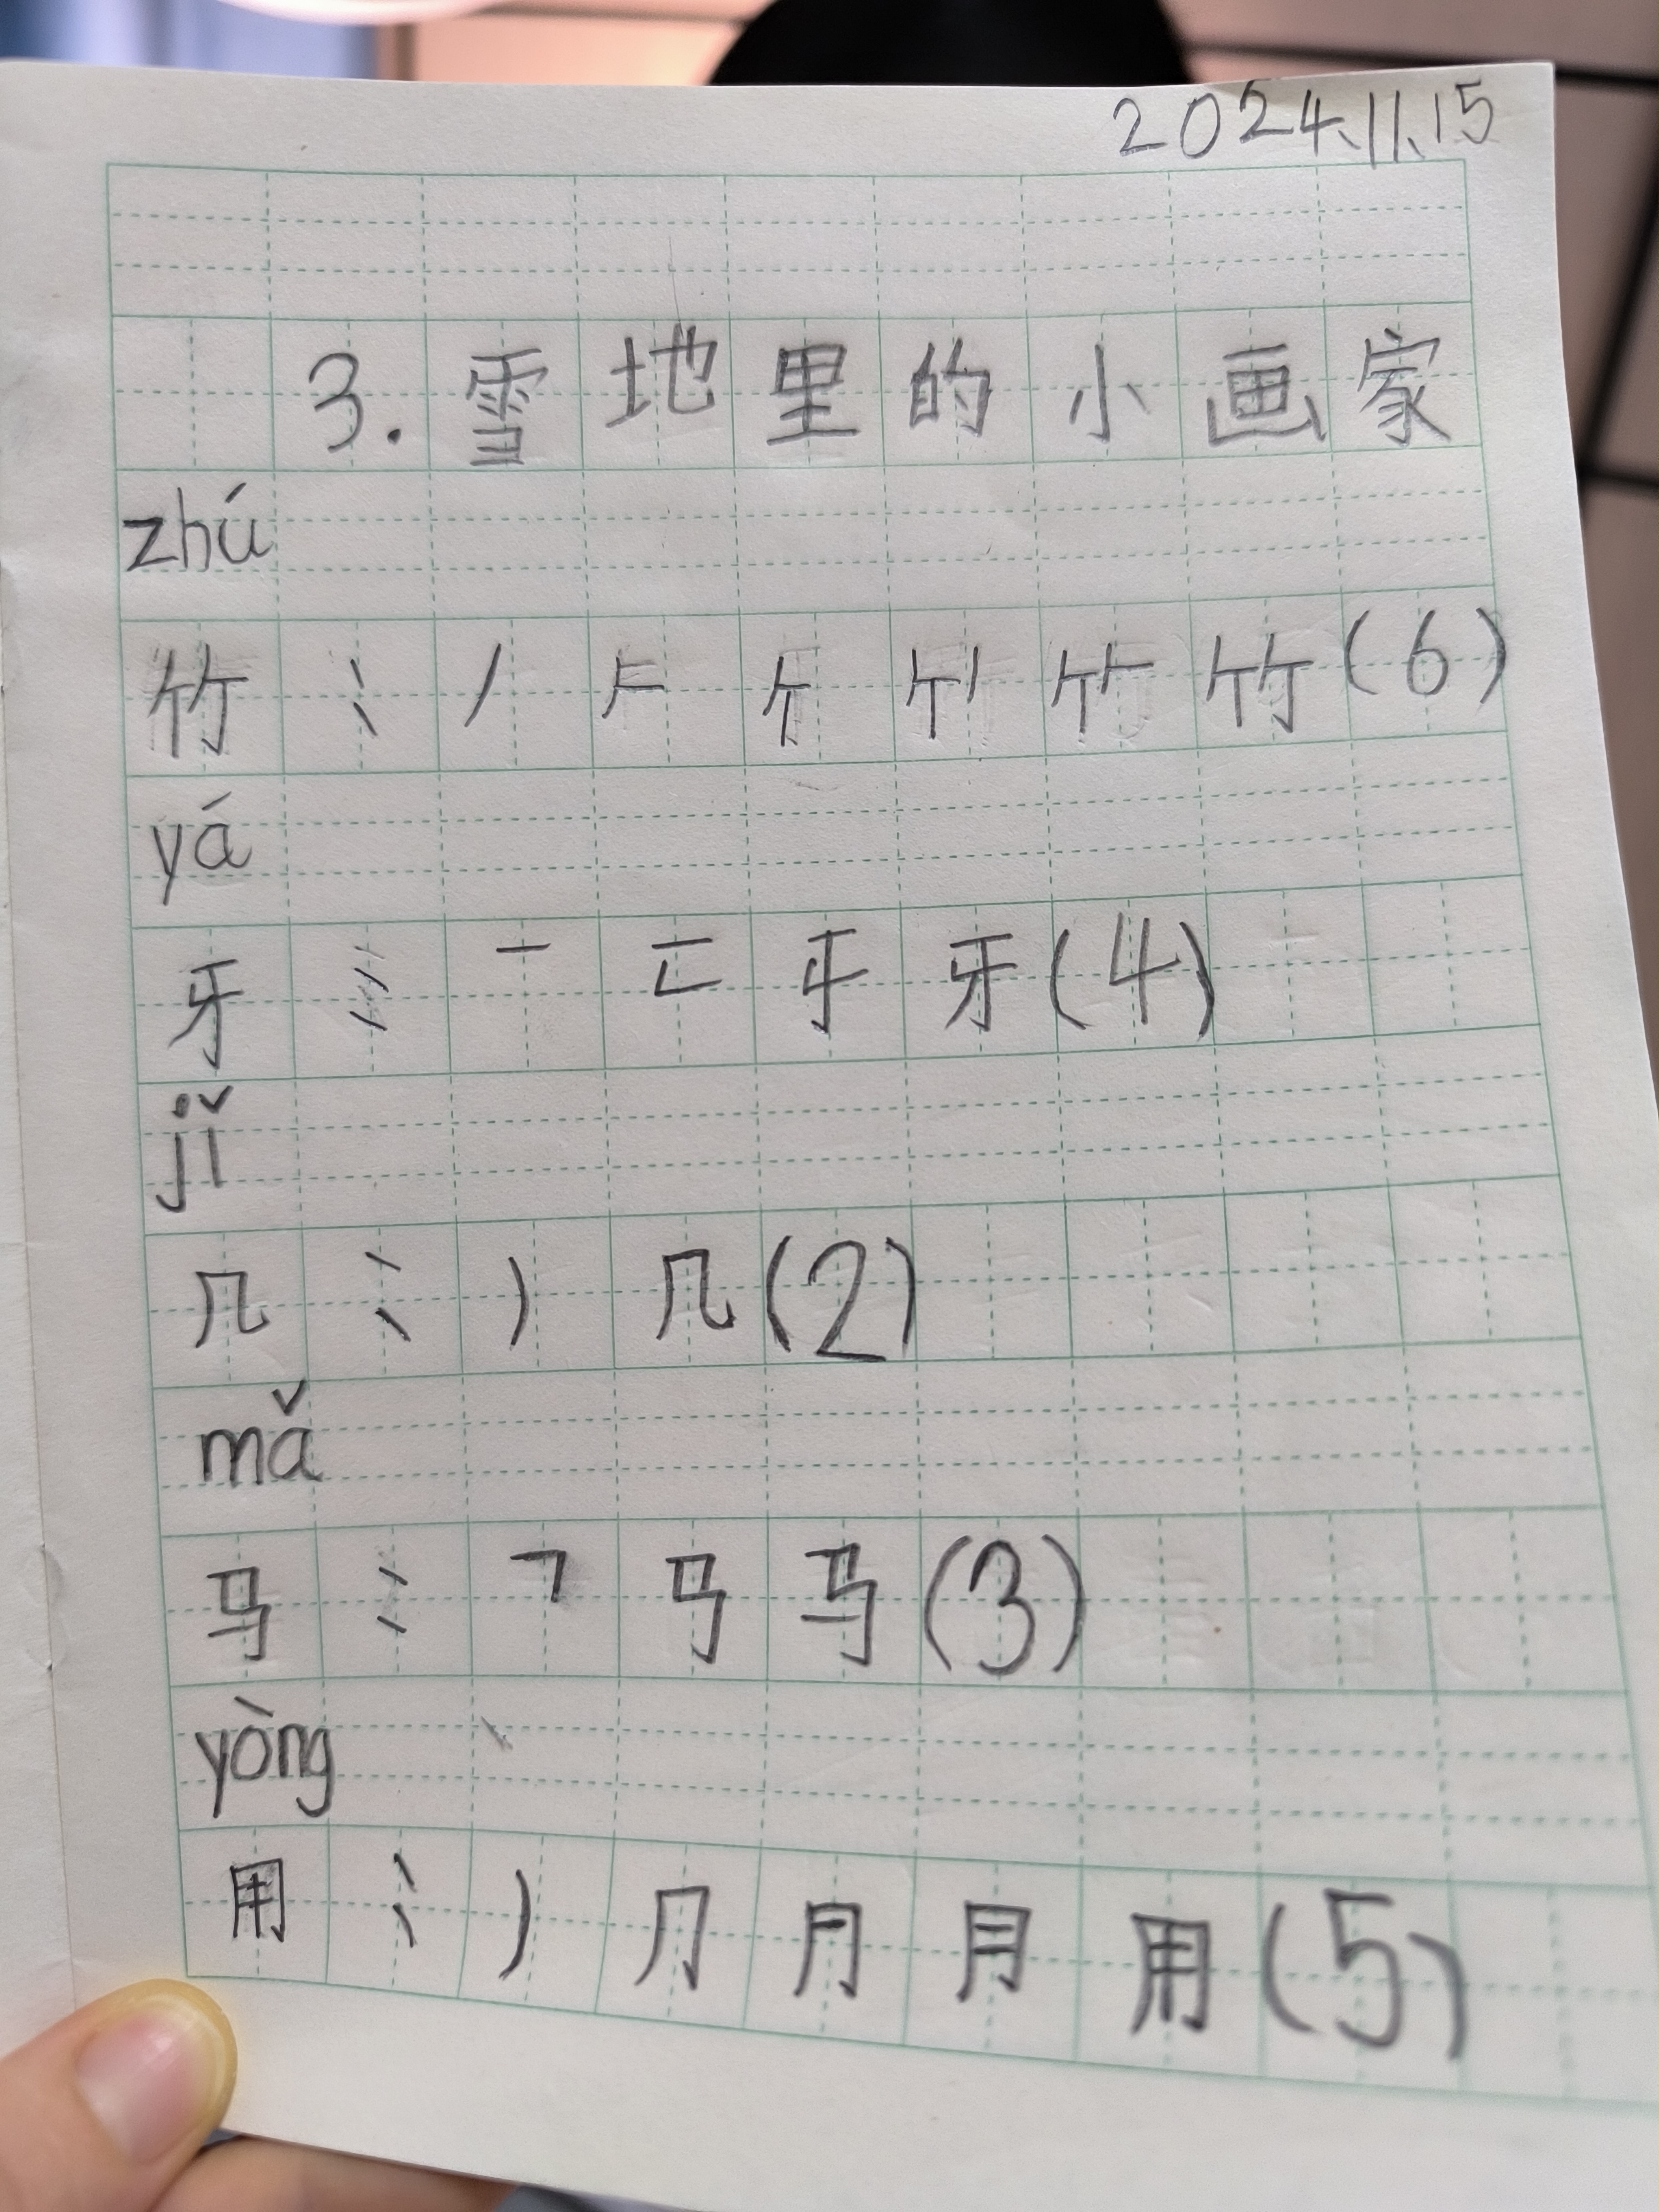 2024.11.15
3.雪地里的小画家
zhú
竹：丿 𠂉 ⺮ 竹(6)
yá
牙：一 牙(4)
jǐ
几：丿 几(2)
mǎ
马：㇕ 马(3)
yòng
用：丿 ⺆ 月 用(5)